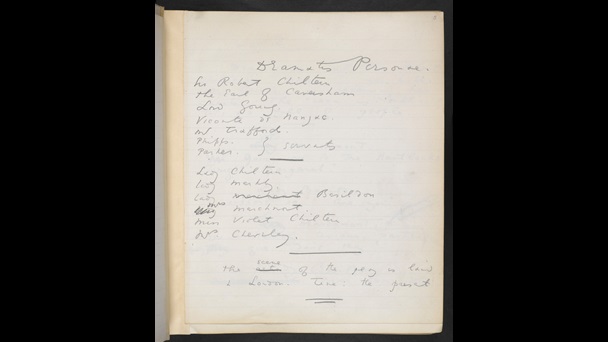 Dramatis Personae.
Sir Robert Chiltern
the Earl of Caversham
Lord Goring
Vicomte de Nanjac.
Mr Trafford.
Phipps. } servants
Parker.
Lady Chiltern
Lady Markby
Lady Basildon
Mrs Marchmont.
Miss Violet Chiltern
Mrs Cheveley.
the scene of the play is laid
in London. Time: the present